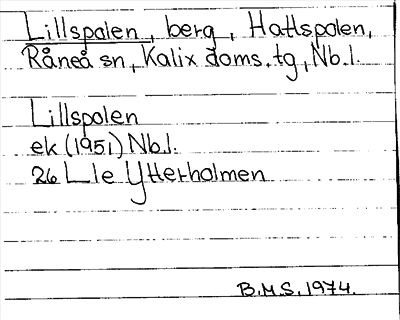 Lillspolen, berg, Hattspolen,
Råneå sn, Kalix doms.tg, Nb.l.
Lillspolen
ek (1951) Nb.l.
26 L1e Ytterholmen
B.M.S. 1974.